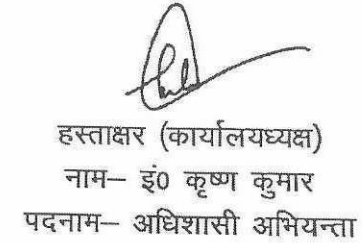 हस्ताक्षर (कार्यालयध्यक्ष)
नाम– इं0 कृष्ण कुमार
पदनाम– अधिशासी अभियन्ता